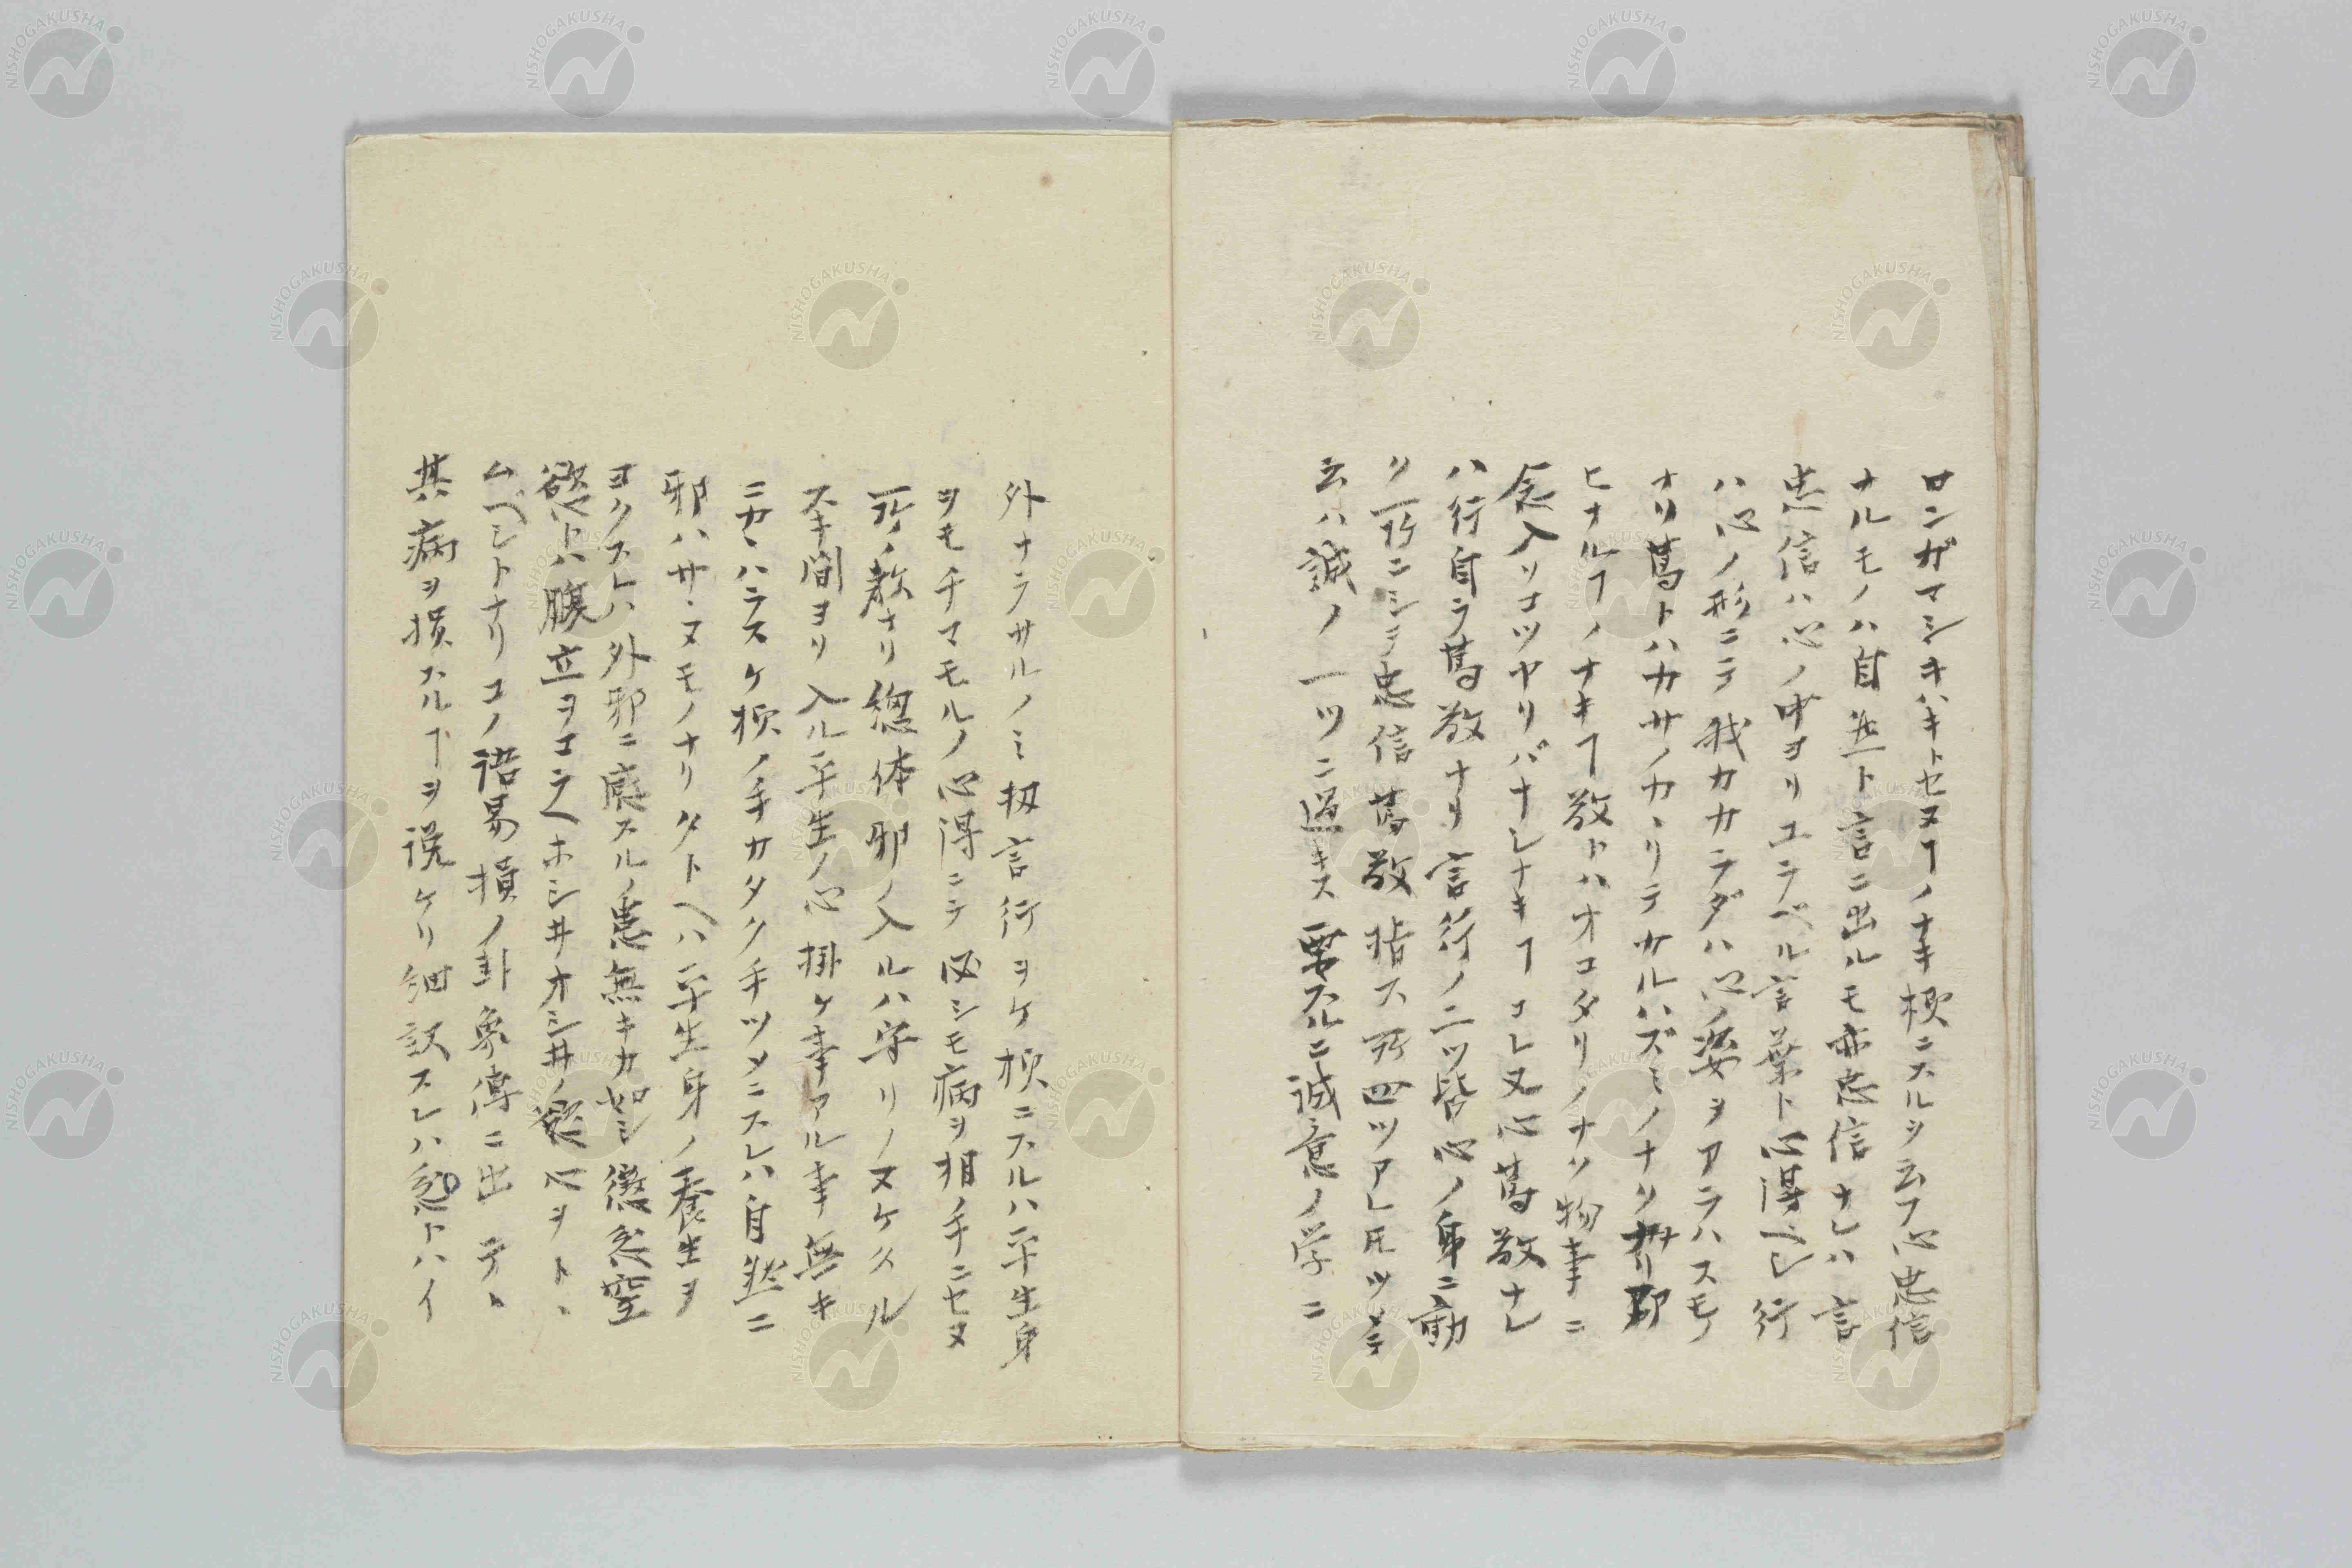 ロンガマシキハキトセヌヿノナキ様ニスルヲ云フ心忠信
ナルモノハ自然ト言ニ出ルモ亦忠信ナレハ言
忠信ハ心ノ中ヨリエラベル言葉ト心得ベシ行
ハ心ノ形ニテ我カカラダハ心ノ姿ヲアラハスモノ
ナリ篤トハカサノカヽリテカルハズミノナク
ヒナルヿノナキヿ敬トハオコタリノナク物事ニ
念入リコツヤリバナシナキヿコレ又心篤敬ナレ
ハ行自ラ篤敬ナリ言行ノ二ツ皆心ノ身ニ動
ク所ニシテ忠信篤敬指ス所四ツアレ𪜈ツメテ
云ハ誠ノ一ツニ過キス要スルニ誠意ノ学ニ
外ナラサルノミ扨言行ヲケ様ニスルハ平生身
ヲモチマモルノ心得ニテ必シモ病ヲ相手ニセヌ
所ノ教ナリ總体邪ノ入ルハ守リノヌケクル
スキ間ヨリ入ル平生ノ心掛ケ事アル事無キ
ニカヽハラスケ様ノ手カタク手ツメニスレハ自然ニ
邪ハサヽヌモノナリタトヘハ平生身ノ養生ヲ
ヨクスレハ外邪ニ感スルノ患無キカ如シ懲忿窒
慾トハ腹立ヲコラヘホシキオシキノ慾心ヲトヽ
ムベシトナリコノ語易損ノ卦象傳ニ出テヽ
其病ヲ損スルヿヲ説ケリ細説スレハ忿トハイ